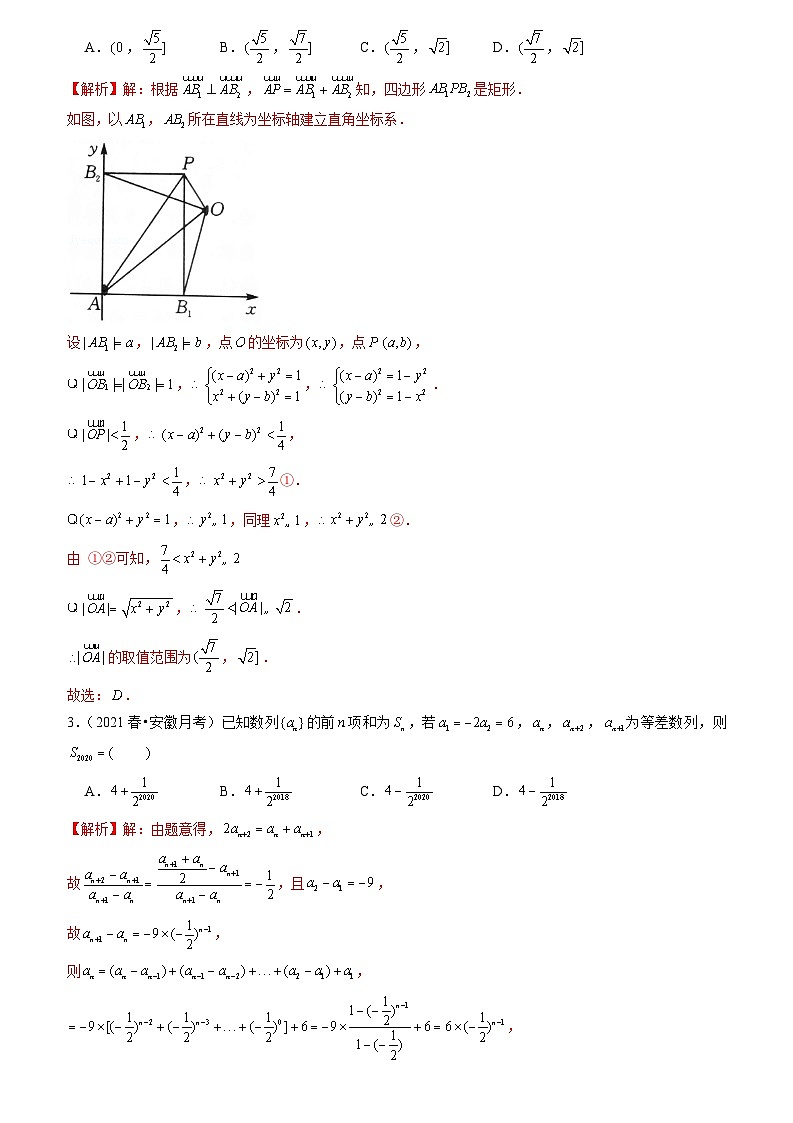 A．(0，√5/2]　B．(√5/2，√7/2]　C．(√5/2，√2]　D．(√7/2，√2]
【解析】解：根据 AB₁ ⊥ AB₂，AP = AB₁ + AB₂ 知，四边形 AB₁PB₂ 是矩形．
如图，以 AB₁，AB₂ 所在直线为坐标轴建立直角坐标系．
y
B₂ P
O
A B₁ x
设 | AB₁ |= a，| AB₂ |= b，点 O 的坐标为 (x, y)，点 P (a,b)，
Q | OB₁ |=| OB₂ |= 1，∴ {(x − a)² + y² = 1, x² + (y − b)² = 1，∴ {(x − a)² = 1 − y², (y − b)² = 1 − x²．
Q | OP |< 1/2，∴ (x − a)² + (y − b)² < 1/4，
∴ 1 − x² + 1 − y² < 1/4，∴ x² + y² > 7/4 ①．
Q (x − a)² + y² = 1，∴ y² „ 1，同理 x² „ 1，∴ x² + y² „ 2 ②．
由 ①②可知，7/4 < x² + y² „ 2
Q | OA |= √(x² + y²)，∴ √7/2 <| OA | „ √2．
∴| OA | 的取值范围为 (√7/2，√2]．
故选：D．
3.（2021 春•安徽月考）已知数列{aₙ} 的前 n 项和为 Sₙ，若 a₁ = −2a₂ = 6，aₙ，aₙ₊₂，aₙ₊₁为等差数列，则
S₂₀₂₀ = (　　)
A．4 + 1/2²⁰²⁰　B．4 + 1/2²⁰¹⁸　C．4 − 1/2²⁰²⁰　D．4 − 1/2²⁰¹⁸
【解析】解：由题意得，2aₙ₊₂ = aₙ + aₙ₊₁，
故 (aₙ₊₂ − aₙ₊₁)/(aₙ₊₁ − aₙ) = ((aₙ₊₁ + aₙ)/2 − aₙ₊₁)/(aₙ₊₁ − aₙ) = −1/2，且 a₂ − a₁ = −9，
故 aₙ₊₁ − aₙ = −9 × (−1/2)ⁿ⁻¹，
则 aₙ = (aₙ − aₙ₋₁) + (aₙ₋₁ − aₙ₋₂) + … + (a₂ − a₁) + a₁，
= −9 × [(−1/2)ⁿ⁻² + (−1/2)ⁿ⁻³ + … + (−1/2)⁰] + 6 = −9 × (1 − (−1/2)ⁿ⁻¹)/(1 − (−1/2)) + 6 = 6 × (−1/2)ⁿ⁻¹，